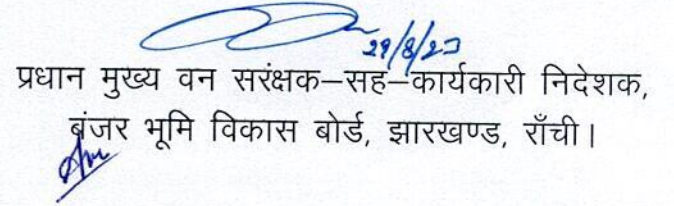 29/8/23
प्रधान मुख्य वन सरंक्षक–सह–कार्यकारी निदेशक,
बंजर भूमि विकास बोर्ड, झारखण्ड, राँची।